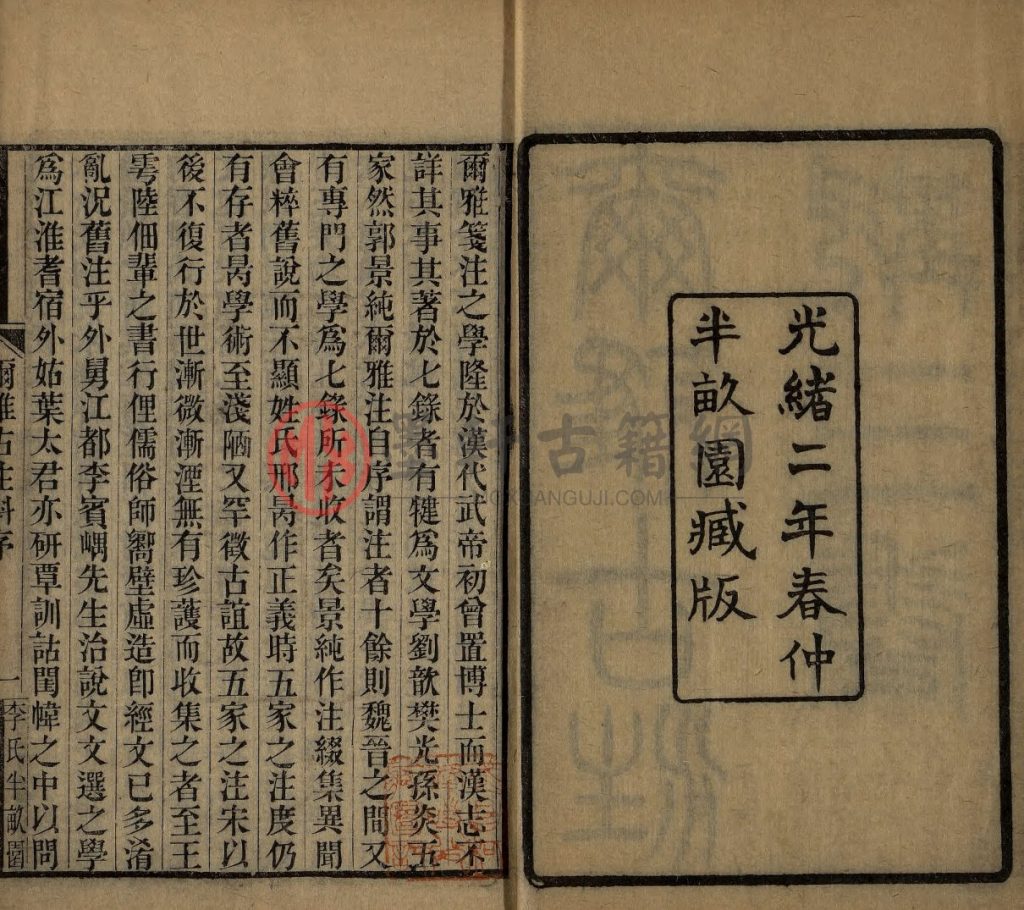 光緒二年春仲
半畝園臧版
爾雅箋注之學隆於漢代武帝初曾置博士而漢志不
詳其事其著於七錄者有犍爲文學劉歆樊光孫炎五
家然郭景純爾雅注自序謂注者十餘則魏晉之間又
有專門之學爲七錄所未收者矣景純作注綴集異聞
會粹舊說而不顯姓氏邢昺作正義時五家之注度仍
有存者昺學術至淺陋又罕徵古誼故五家之注宋以
後不復行於世漸微漸湮無有珍護而收集之者至王
雱陸佃輩之書行俚儒俗師嚮壁虛造卽經文已多淆
亂況舊注乎外舅江都李賓嵎先生治說文文選之學
爲江淮耆宿外姑葉太君亦研覃訓詁閨幃之中以問
爾雅古注斠序
一
李氏半畝園